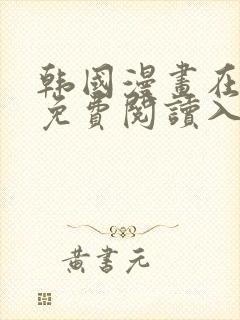 韩國漫畫在
免費閱讀入
黃書元